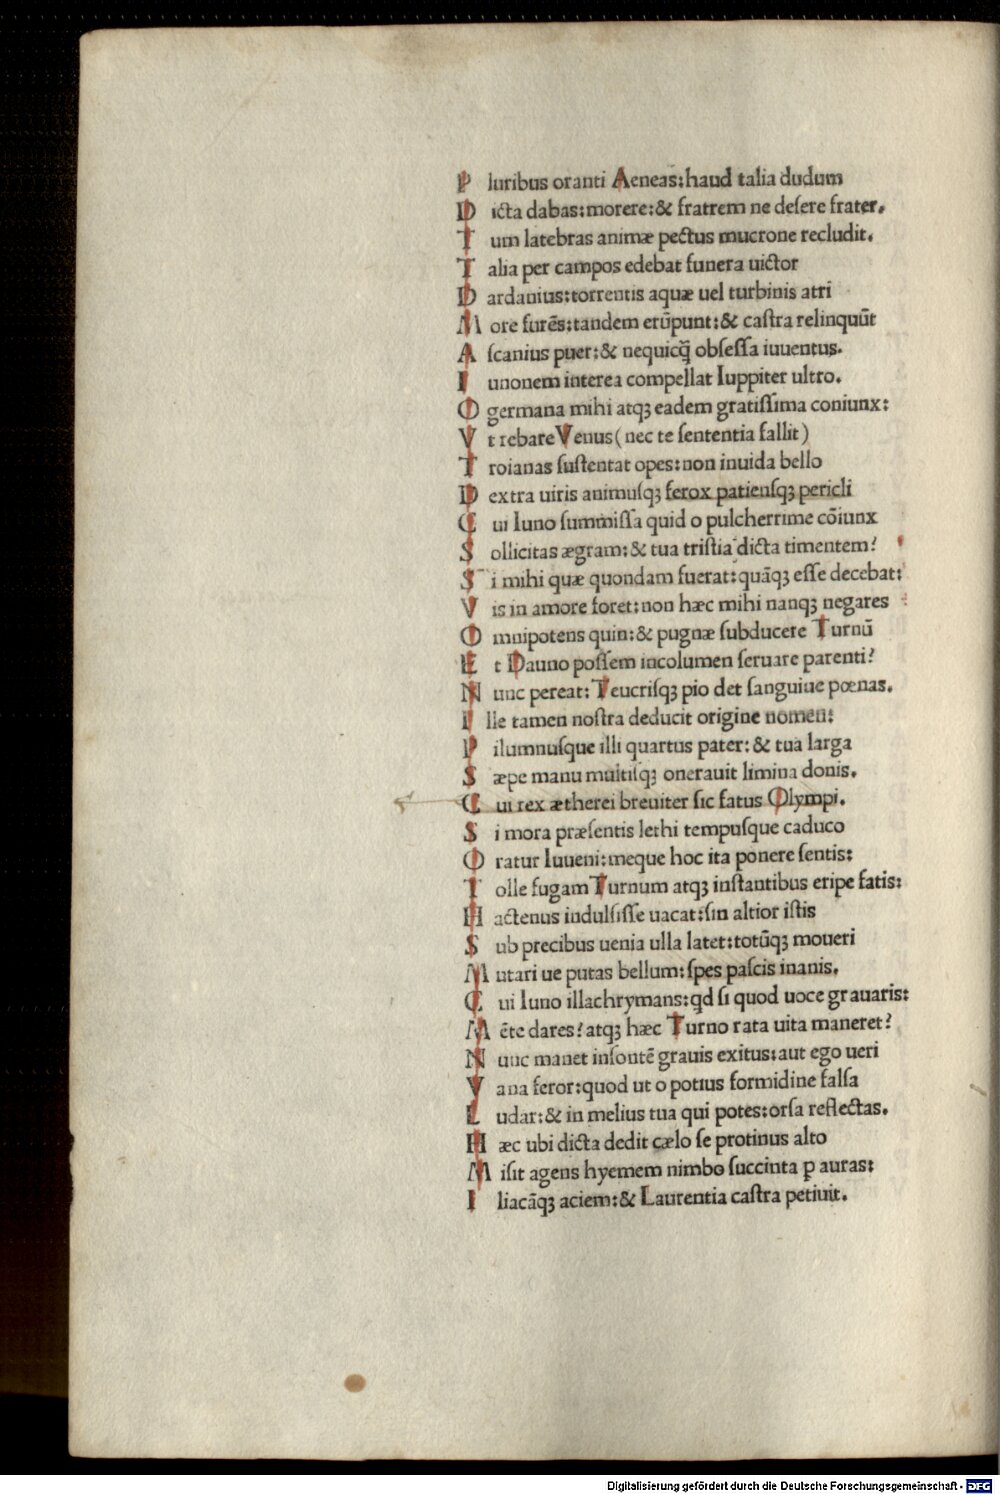 P luribus oranti Aeneas:haud talia dudum
D icta dabas:morere:& fratrem ne deſere frater.
T um latebras animæ pectus mucrone recludit.
T alia per campos edebat funera uictor
D ardanius:torrentis aquæ uel turbinis atri
M ore furēs:tandem erūpunt:& caſtra relinquūt
A ſcanius puer:& nequicq̄ obſeſſa iuuentus.
I unonem interea compellat Iuppiter ultro.
O germana mihi atqꝫ eadem gratiſſima coniunx:
V t rebare Venus (nec te ſententia fallit)
T roianas ſuſtentat opes:non inuida bello
D extra uiris animuſqꝫ ferox patienſqꝫ pericli
C ui Iuno ſummiſſa quid o pulcherrime cōiunx
S ollicitas ægram:& tua triſtia dicta timentem?
S i mihi quæ quondam fuerat:quāqꝫ eſſe decebat:
V is in amore foret:non hæc mihi nanqꝫ negares
O mnipotens quin:& pugnæ ſubducere Turnū
E t Dauno poſſem incolumen ſeruare parenti?
N unc pereat:Teucriſqꝫ pio det ſanguine pœnas.
I lle tamen noſtra deducit origine nomen:
P ilumnuſque illi quartus pater:& tua larga
S æpe manu multiſqꝫ onerauit limina donis.
C ui rex ætherei breuiter ſic fatus Olympi.
S i mora præſentis lethi tempuſque caduco
O ratur Iuueni:meque hoc ita ponere ſentis:
T olle fugam Turnum atqꝫ inſtantibus eripe fatis:
H actenus indulſiſſe uacat:ſin altior iſtis
S ub precibus uenia ulla latet:totūqꝫ moueri
M utari ue putas bellum:ſpes paſcis inanis.
C ui Iuno illachrymans:qd ſi quod uoce grauaris:
M ēte dares?atqꝫ hæc Turno rata uita maneret?
N unc manet inſontē grauis exitus:aut ego ueri
V ana feror:quod ut o potius formidine falſa
L udar:& in melius tua qui potes:orſa reflectas.
H æc ubi dicta dedit cælo ſe protinus alto
M iſit agens hyemem nimbo ſuccinta ꝑ auras:
I liacāqꝫ aciem:& Laurentia caſtra petiuit.
Digitalisierung gefördert durch die Deutsche Forschungsgemeinschaft - DFG